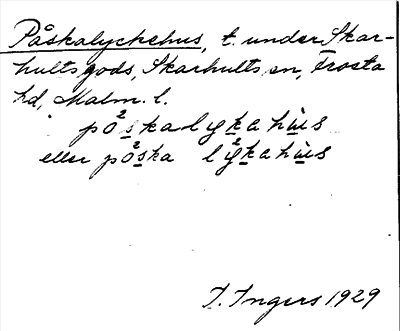 Påskalyckehus, t. under Skar-
hults gods, Skarhults sn, Frosta
hd, Malm. l.
pö²skalyckahu̇s
eller pö²ska ly²kahu̇s
I. Ingers 1929